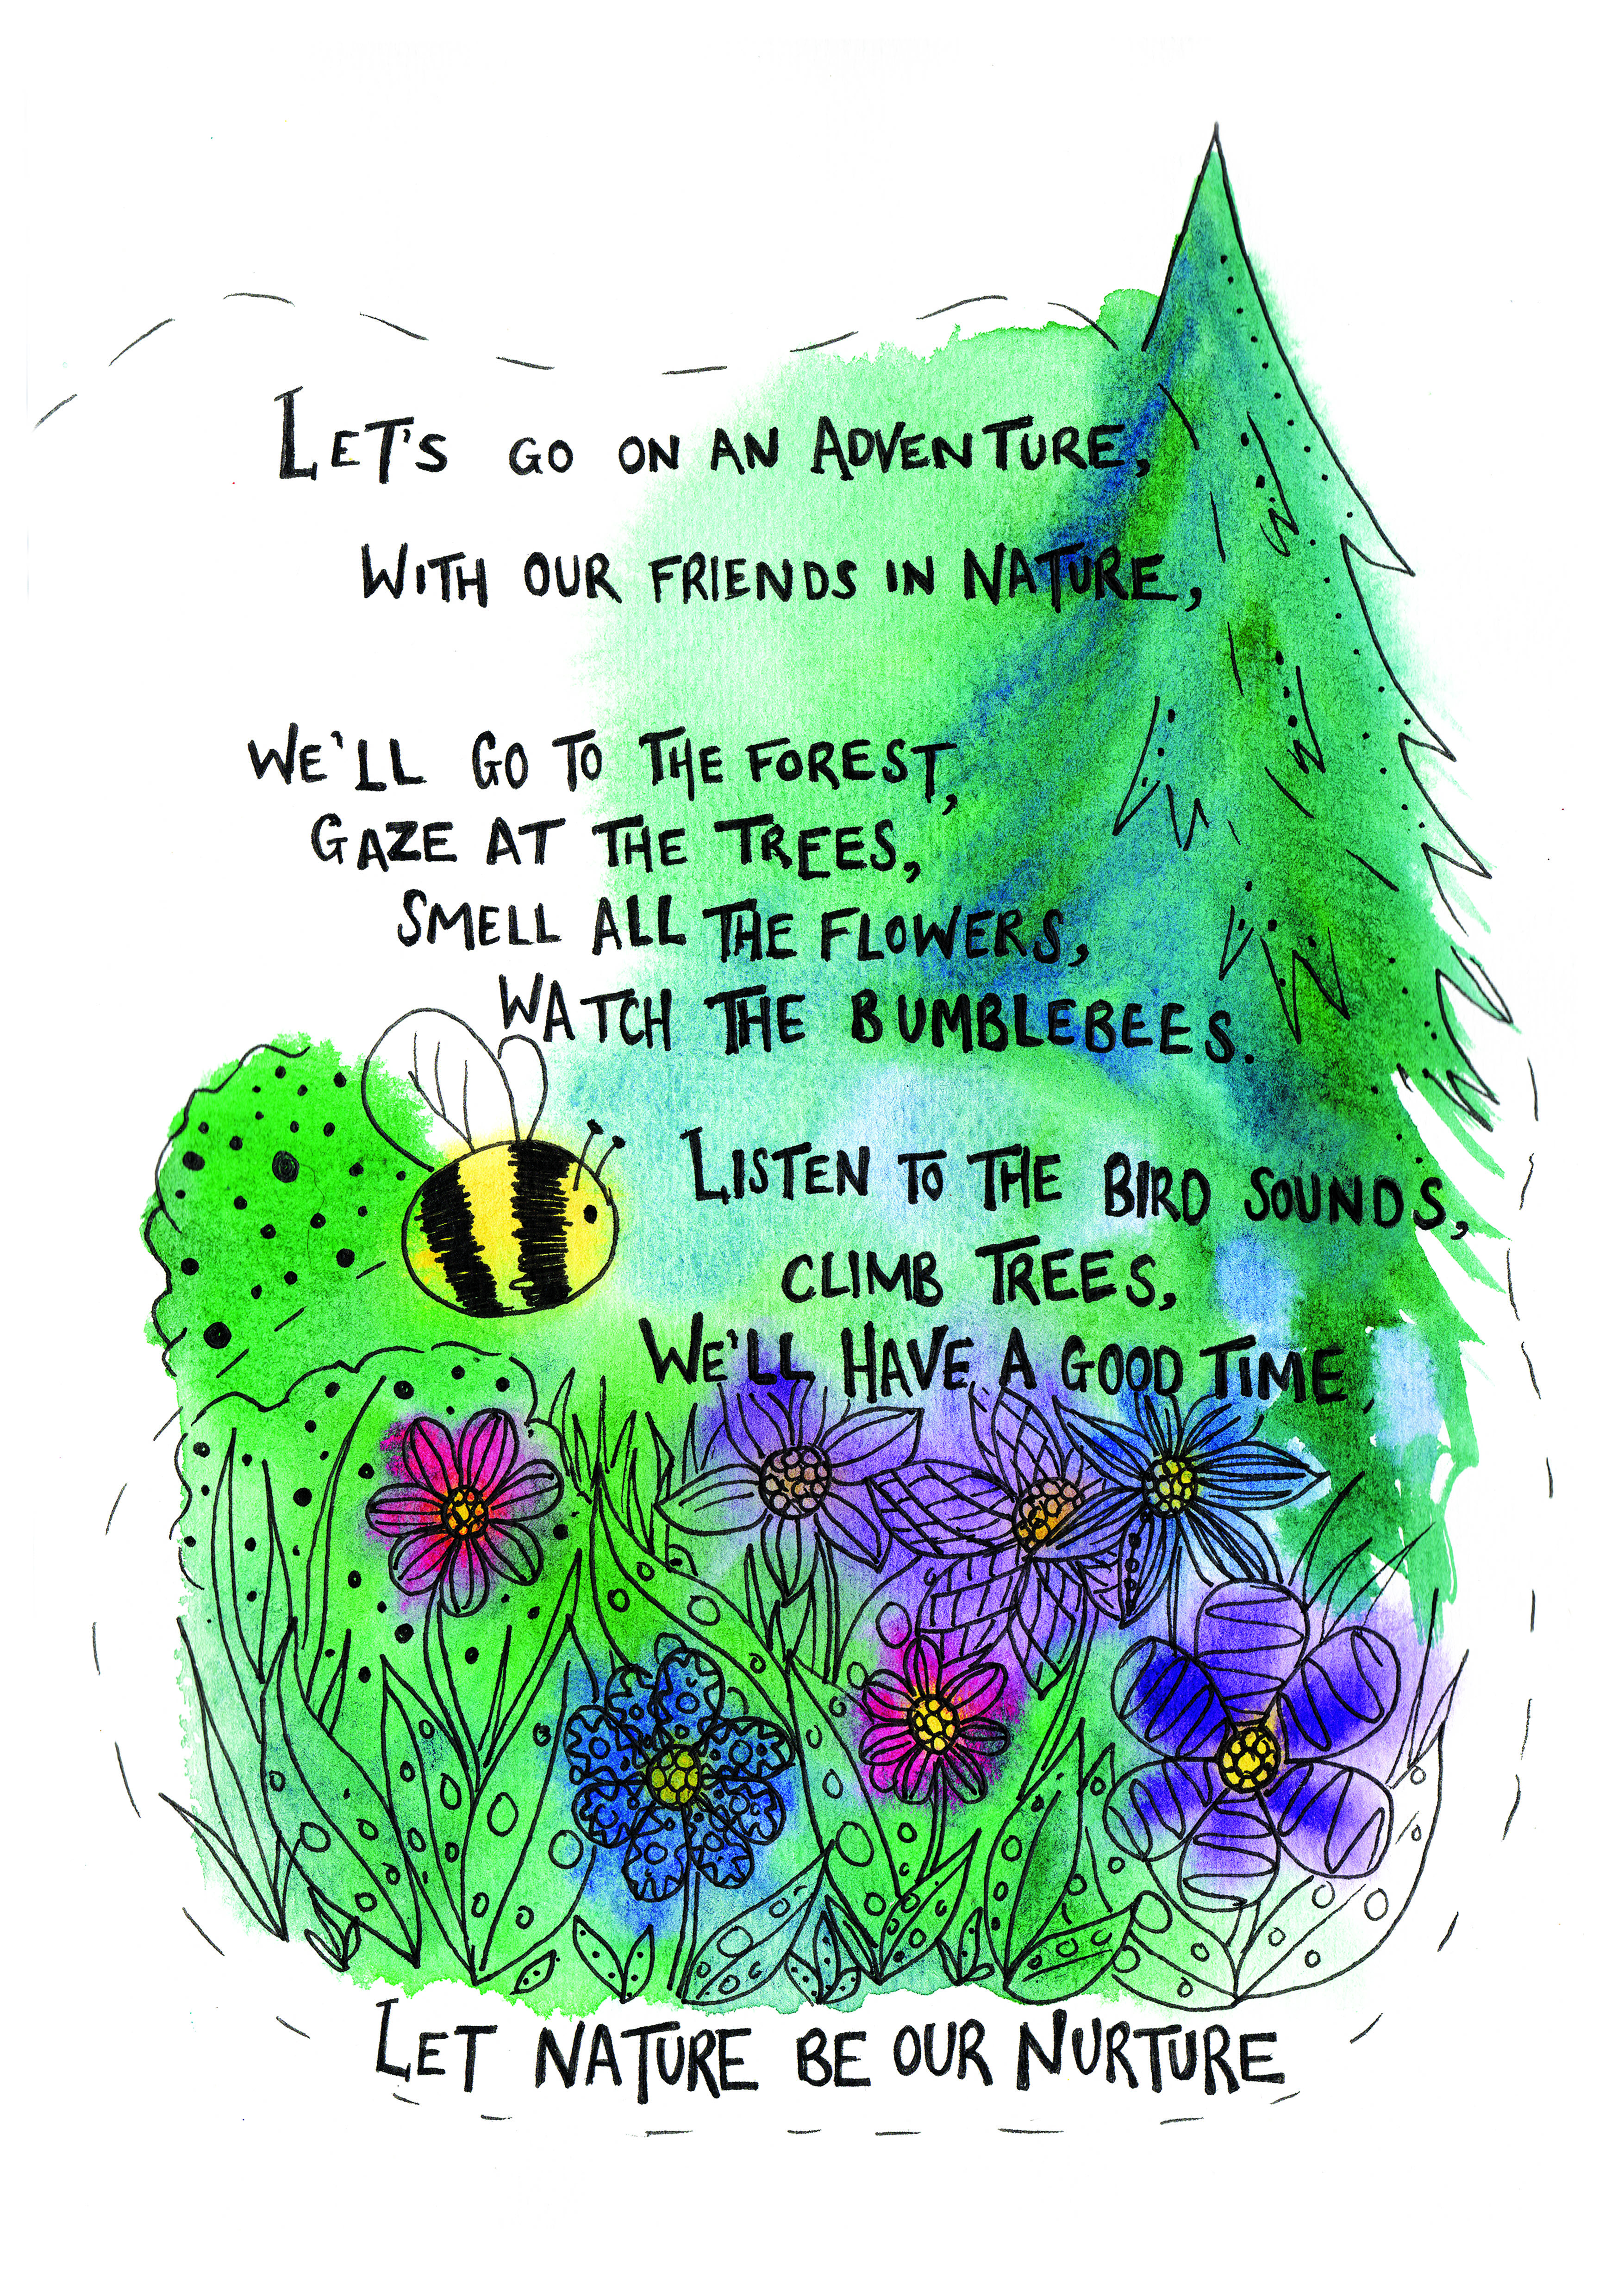 LET'S GO ON AN ADVENTURE,
WITH OUR FRIENDS IN NATURE,
WE'LL GO TO THE FOREST,
GAZE AT THE TREES,
SMELL ALL THE FLOWERS,
WATCH THE BUMBLEBEES.
LISTEN TO THE BIRD SOUNDS,
CLIMB TREES,
WE'LL HAVE A GOOD TIME.
LET NATURE BE OUR NURTURE